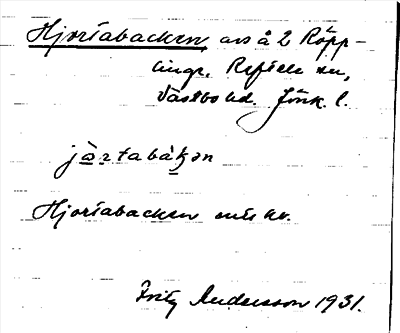 Hjortabacken, avs å 2 Röpp-
linge, Reftele sn,
Västbo hd. Jönk. l.
jɑ̀rtabàkən
Hjortabacken enl. kr.
Fritz Andersson 1931.